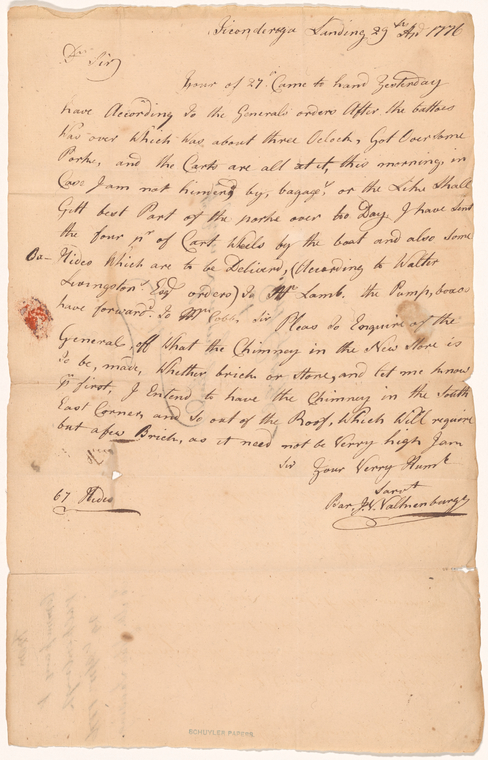 Ticonderoga Landing 29th Ap 1776
Dr Sir
Your of 27th Came to hand Yesterday
have Acording To the Generals orders After the battoes
Was over Which Was about three Oclock, Got Over Some
Porke, and the Carts are all at it, this morning, in
Case I am not hinderd by, bagage, or the Like Shall
Gitt best Part of the porke over to Day. I have Sent
the four pr of Cart Wheels by the boat and also Some
Ox- Hides Which are to be Deliverd, (According to Walter
Livingston Esqr orders) To Mr Lamb. the Pump, boxes
have forwardd. To Mr Cobb. Sir Pleas To Enquire of the
General, off What the Chimney in the New Store is
To be, made, Whether brick or Stone, and let me know
pr first, I Entend to have the Chimney in the South
East Corner, and So out of the Roof, Which Will require
but a few Brick, as it need not be Verry high I am
Sir Your Verry Humle
Sarvt
Bar. J. V. Valkenburgh
67 Hides
SCHUYLER PAPERS